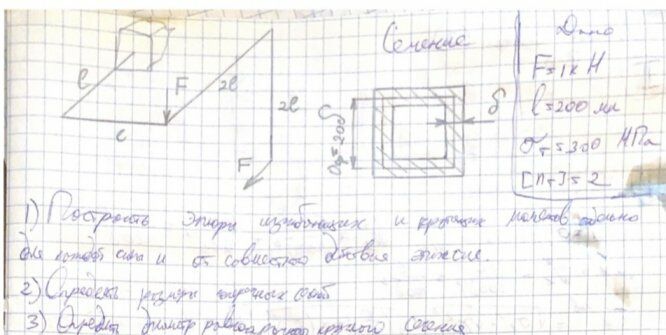 Сечение
Дано
F=1кН
l=200 мм
σт=300 МПа
[nт]=2
l
l
F
2l
2l
F
a=20δ
δ
1) Построить эпюры изгибающих и крутящих моментов отдельно
для каждой силы и от совместного действия
2) Определить размеры
3) Определить диаметр равнопрочного круглого сечения